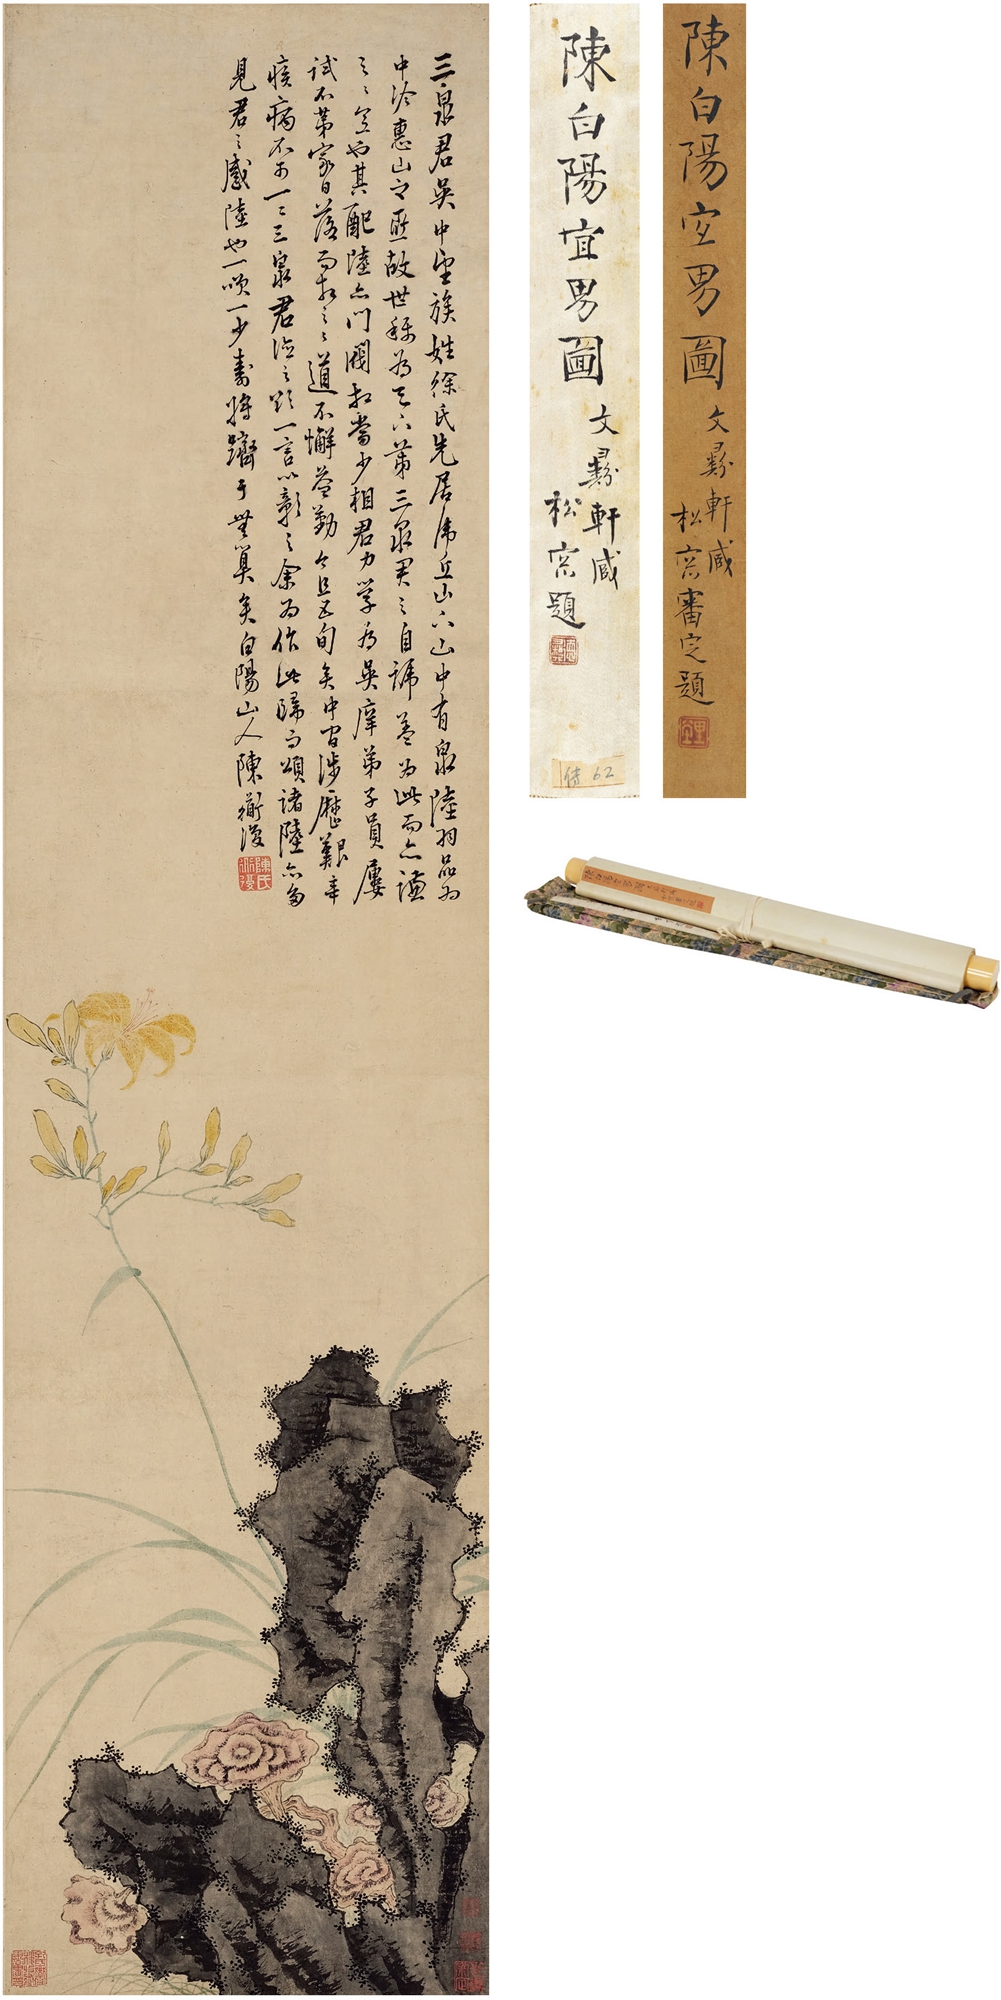 三泉君吳中望族姓徐氏先居虎丘山下山中有泉陸羽品為
中泠惠山之匹故世稱為天下第三泉君之自號蓋為此而亦謙
之之意也其配陸亦門閥相當少相君力學為吳庠弟子員屢
試不第家日落而相之之道不懈益勤今且五旬矣中間涉歷艱辛
疾病不可一二三泉君德之欲一言以彰之余為作此歸而頌諸陸亦当
見君之感陸也一笑一少壽將躋于無算矣白陽山人陳衡復
陳氏
陳白陽宜男圖
文彝軒藏
松窗題
陳白陽宜男圖
文彝軒藏
松窗審定題
62